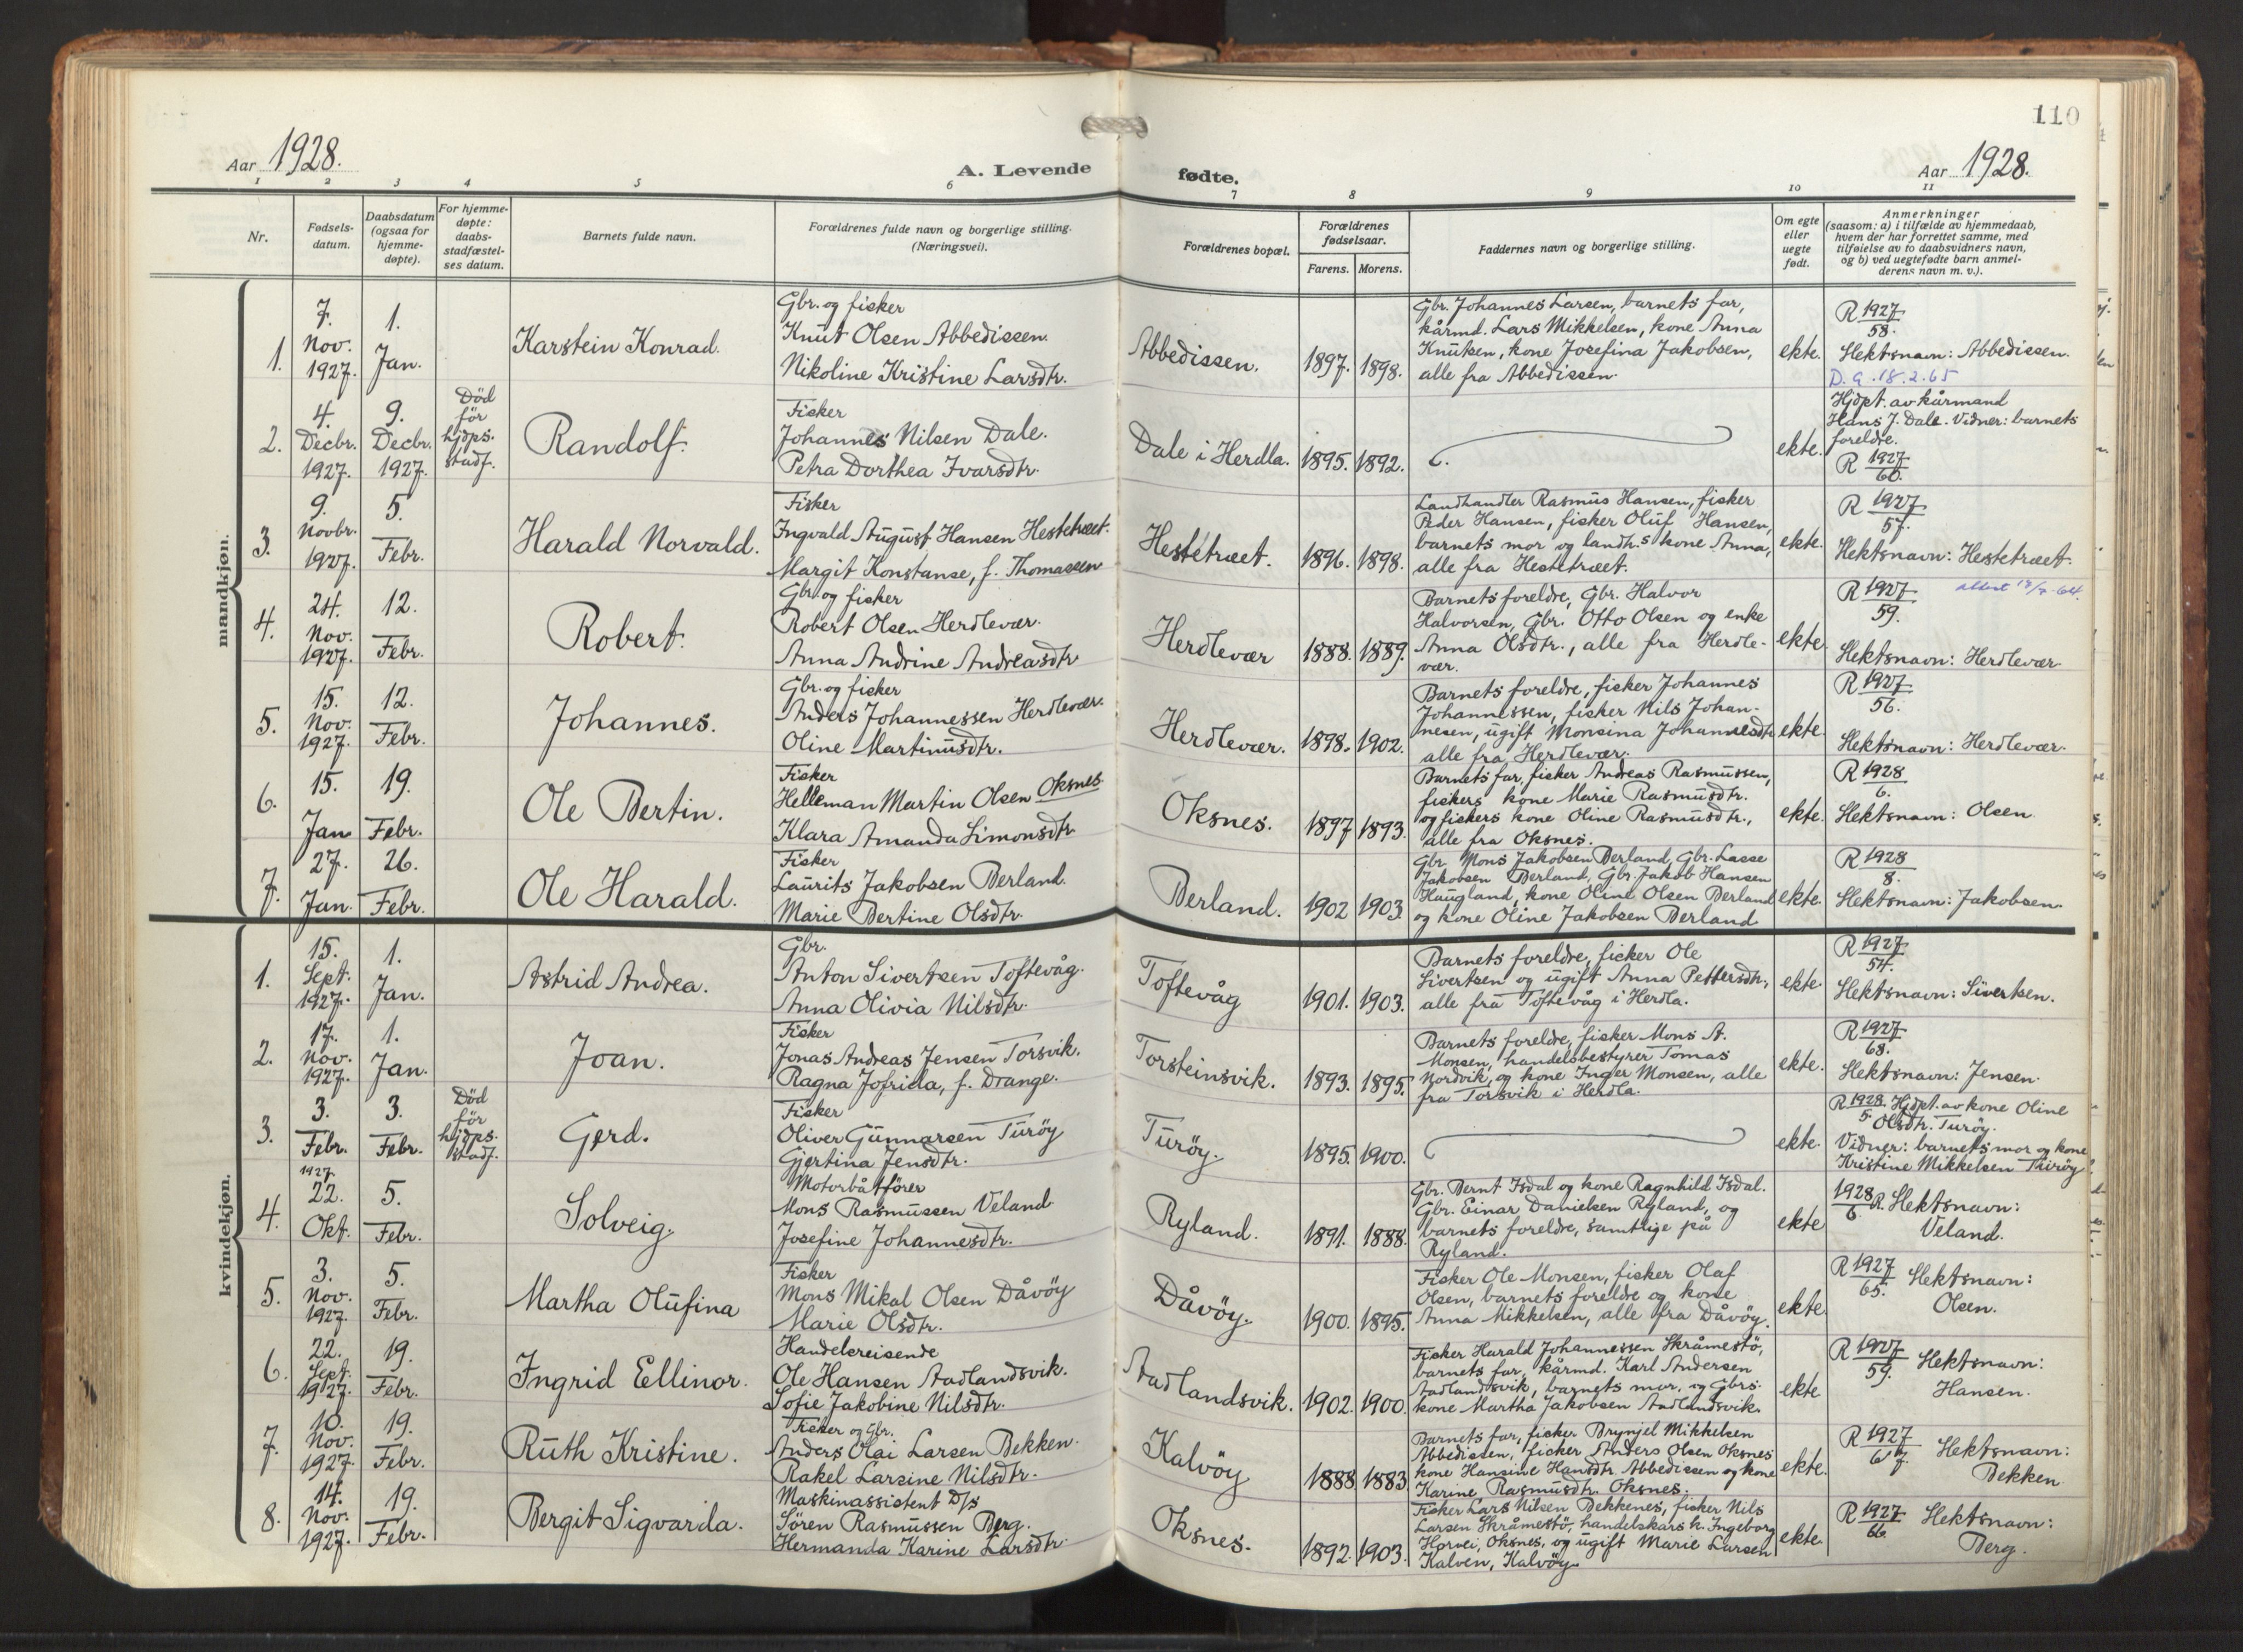 110
Aar 1928.
A. Levende fødte.
Aar 1928.
1 2 3 4 5 6 7 8 9 10 11
Nr.
Fødsels-
datum.
Daabsdatum
(ogsaa for
hjemme-
døpte).
For hjemme-
døpte:
daabs-
stadfæstel-
ses datum.
Barnets fulde navn.
Forældrenes fulde navn og borgerlige stilling.
(Næringsvei).
Forældrenes bopæl.
Forældrenes
fødselsaar.
Farens. Morens.
Faddernes navn og borgerlige stilling.
Om egte
eller
uegte
født.
Anmerkninger
(saasom: a) i tilfælde av hjemmedaab,
hvem der har forrettet samme, med
tilføielse av to daabsvidners navn,
og b) ved uegtefødte barn anmel-
derens navn m. v.).
mandkjøn.
1.
7.
Nov.
1927.
1.
Jan.
Karstein Konrad.
Gbr. og fisker
Knut Olsen Abbedissen.
Nikoline Kristine Larsdtr.
Abbedissen.
1897. 1898.
Gbr. Johannes Larsen, barnets far,
kårmd. Lars Mikkelsen, kone Anna
Knutsen, kone Josefina Jakobsen,
alle fra Abbedissen.
ekte.
R 1927
58.
Slektsnavn: Abbedissen.
D.a. 18.2.65
2.
4.
Decbr.
1927.
9.
Decbr.
1927.
Död
för
hjdps.
stadf.
Randolf.
Fisker
Johannes Nilsen Dale.
Petra Dorthea Ivarsdtr.
Dale i Herdla.
1895. 1892.
ekte.
Hjdpt. av kårmand
Hans J. Dale. Vidner: barnets
foreldre.
R 1927
60.
3.
9.
Novbr.
1927.
5.
Febr.
Harald Norvald.
Fisker
Ingvald August Hansen Hestetræet.
Margit Konstanse, f. Thomassen
Hestetræet.
1896. 1898.
Landhandler Rasmus Hansen, fisker
Peder Hansen, fisker Oluf Hansen,
barnets mor og landh.s kone Anna,
alle fra Hestetræet.
ekte.
R 1927
57.
Slektsnavn: Hestetræet.
4.
24.
Nov.
1927.
12.
Febr.
Robert.
Gbr. og fisker
Robert Olsen Herdlevær.
Anna Andrine Andreasdtr.
Herdlevær
1888. 1889.
Barnets foreldre, Gbr. Halvor
Halvorsen, Gbr. Otto Olsen og enke
Anna Olsdtr., alle fra Herdle-
vær.
ekte.
R 1927
59.
Slektsnavn: Herdlevær
5.
15.
Nov.
1927.
12.
Febr.
Johannes.
Gbr. og fisker
Anders Johannessen Herdlevær.
Oline Martinusdtr.
Herdlevær.
1898. 1902.
Barnets foreldre, fisker Johannes
Johannessen, fisker Nils Johan-
nesen, ugift Monsina Johannesdtr.
alle fra Herdlevær.
ekte.
R 1927
56.
Slektsnavn: Herdlevær.
6.
15.
Jan
19.
Febr.
Ole Bertin.
Fisker
Helleman Martin Olsen Oksnes
Klara Amanda Simonsdtr.
Oksnes.
1897 1893.
Barnets far, fisker Andreas Rasmussen,
fiskers kone Marie Rasmusdtr.
og fiskers kone Oline Rasmusdtr.,
alle fra Oksnes.
ekte.
R 1928
6.
Slektsnavn: Olsen
7.
27.
Jan.
26.
Febr.
Ole Harald.
Fisker
Laurits Jakobsen Berland.
Marie Bertine Olsdtr.
Berland.
1902 1903.
Gbr. Mons Jakobsen Berland, Gbr. Lasse
Jakobsen Berland, Gbr. Jakob Hansen
Haugland, kone Oline Olsen Berland
og kone Oline Jakobsen Berland
ekte.
R 1928
8.
Slektsnavn: Jakobsen.
kvindekjøn.
1.
15.
Sept.
1927.
1.
Jan.
Astrid Andrea.
Gbr.
Anton Sivertsen Toftevåg.
Anna Olivia Nilsdtr.
Toftevåg
1901. 1903.
Barnets foreldre, fisker Ole
Sivertsen og ugift Anna Pettersdtr.,
alle fra Toftevåg i Herdla.
ekte.
R 1927
54.
Slektsnavn: Sivertsen.
2.
17.
Nov.
1927.
1.
Jan.
Joan.
Fisker
Jonas Andreas Jensen Torsvik.
Ragna Jofrida, f. Drange.
Torsteinsvik.
1893. 1895.
Barnets foreldre, fisker Mons A.
Monsen, handelsbestyrer Tomas
Nordvik, og kone Inger Monsen, alle
fra Torsvik i Herdla.
ekte.
R 1927
68.
Slektsnavn: Jensen.
3.
3.
Febr.
3.
Febr.
Död
för
hjdps.
stadf.
Gerd.
Fisker
Oliver Gunnarsen Turöy
Gjertina Jensdtr.
Turöy.
1895. 1900.
ekte.
R 1928. Hjdpt. av kone Oline
5. Olsdtr. Turöy.
Vidner: barnets mor og kone
Kristine Mikkelsen Turöy
4.
1927.
22.
Okt.
5.
Febr.
Solveig.
Motorbåtförer
Mons Rasmussen Veland
Josefine Johannesdtr.
Ryland.
1891. 1888.
Gbr. Bernt Isdal og kone Ragnhild Isdal.
Gbr. Einar Danielsen Ryland, og
barnets foreldre, samtlige på
Ryland.
ekte
1928 R. Slektsnavn:
6.
Veland.
5.
3.
Nov.
1927.
5.
Febr.
Martha Olufina
Fisker
Mons Mikal Olsen Dåvöy
Marie Olsdtr.
Dåvöy.
1900. 1895.
Fisker Ole Monsen, fisker Olaf
Olsen, barnets foreldre og kone
Anna Mikkelsen, alle fra Dåvöy.
ekte
R 1927 Slektsnavn:
65.
Olsen.
6.
22.
Sept.
1927.
19.
Febr.
Ingrid Ellinor.
Handelsreisende
Ole Hansen Aadlandsvik.
Sofie Jakobine Nilsdtr.
Aadlandsvik.
1902. 1900.
Fisker Harald Johannessen Skråmestö,
barnets far, kårmd. Karl Andersen
Aadlandsvik, barnets mor, og Gbrs.
kone Martha Jakobsen Aadlandsvik.
ekte
R 1927 Slektsnavn:
59.
Hansen.
7.
10.
Nov.
1927.
19.
Febr.
Ruth Kristine.
Fisker og Gbr.
Anders Olai Larsen Bekken.
Rakel Larsine Nilsdtr.
Kalvöy
1888 1883
Barnets far, fisker Brynjel Mikkelsen
Abbedissen, fisker Anders Olsen Oksnes
kone Hansine Hansdtr. Abbedissen og kone
Karine Rasmusdtr. Oksnes.
ekte.
R 1927 Slektsnavn:
67.
Bekken
8.
14.
Nov.
1927.
19.
Febr.
Bergit Sigvarda.
Maskinassistent D/S
Sören Rasmussen Berg.
Hermanda Karine Larsdtr.
Oksnes.
1892. 1903.
Fisker Lars Nilsen Bekkenes, fisker Nils
Larsen Skråmestö, handelskars k. Ingeborg
Horvei, Oksnes, og ugift Marie Larsen
Kalven, Kalvöy.
ekte.
R 1927 Slektsnavn:
66.
Berg.